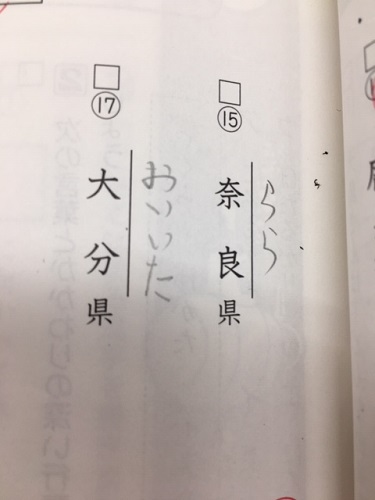 □⑮
奈良県
らら
□⑰
大分県
おいいた